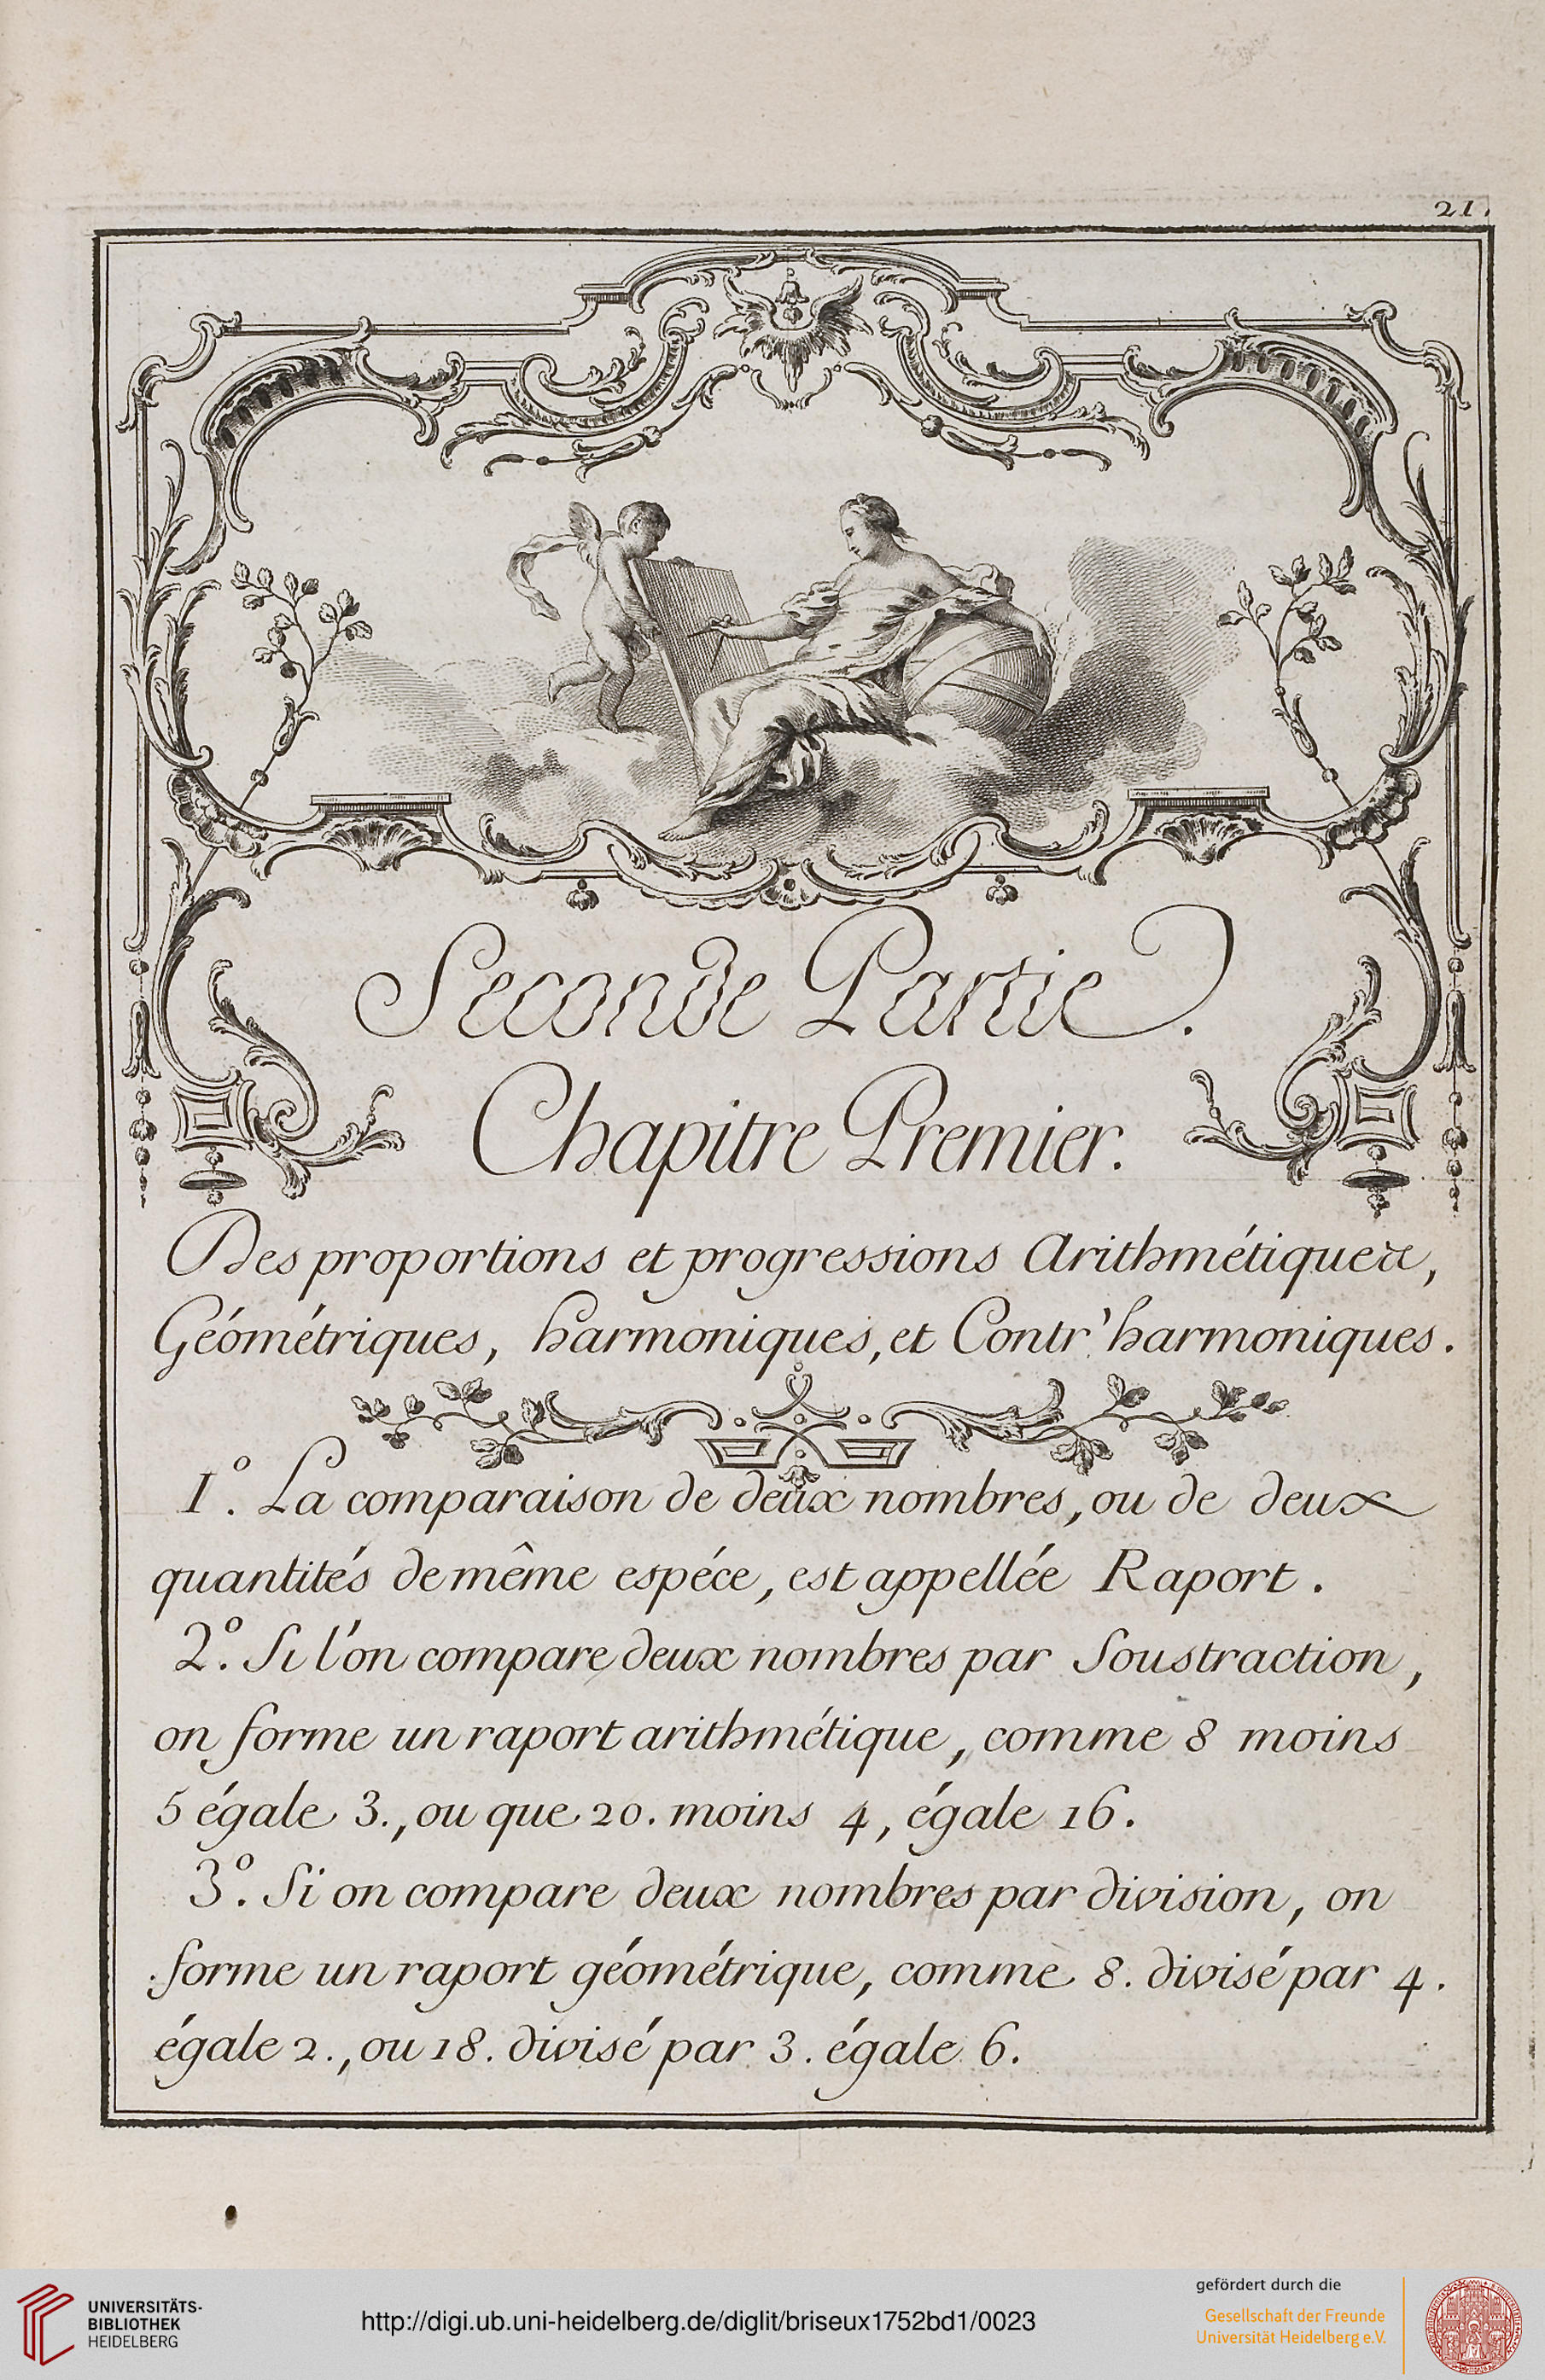 21.
Seconde Partie.
Chapitre Premier.
Des proportions et progressions Arithmétiques,
Géométriques, harmoniques, et Contr'harmoniques.
1º. La comparaison de deux nombres, ou de deux
quantités de même espéce, est appellée Raport.
2º. Si l'on compare deux nombres par Soustraction,
on forme un raport arithmétique, comme 8 moins
5 égale 3., ou que 20. moins 4, égale 16.
3º. Si on compare deux nombres par division, on
forme un raport géométrique, comme 8. divisé par 4.
égale 2., ou 18. divisé par 3. égale 6.
UNIVERSITÄTS-
BIBLIOTHEK
HEIDELBERG
http://digi.ub.uni-heidelberg.de/diglit/briseux1752bd1/0023
gefördert durch die
Gesellschaft der Freunde
Universität Heidelberg e.V.